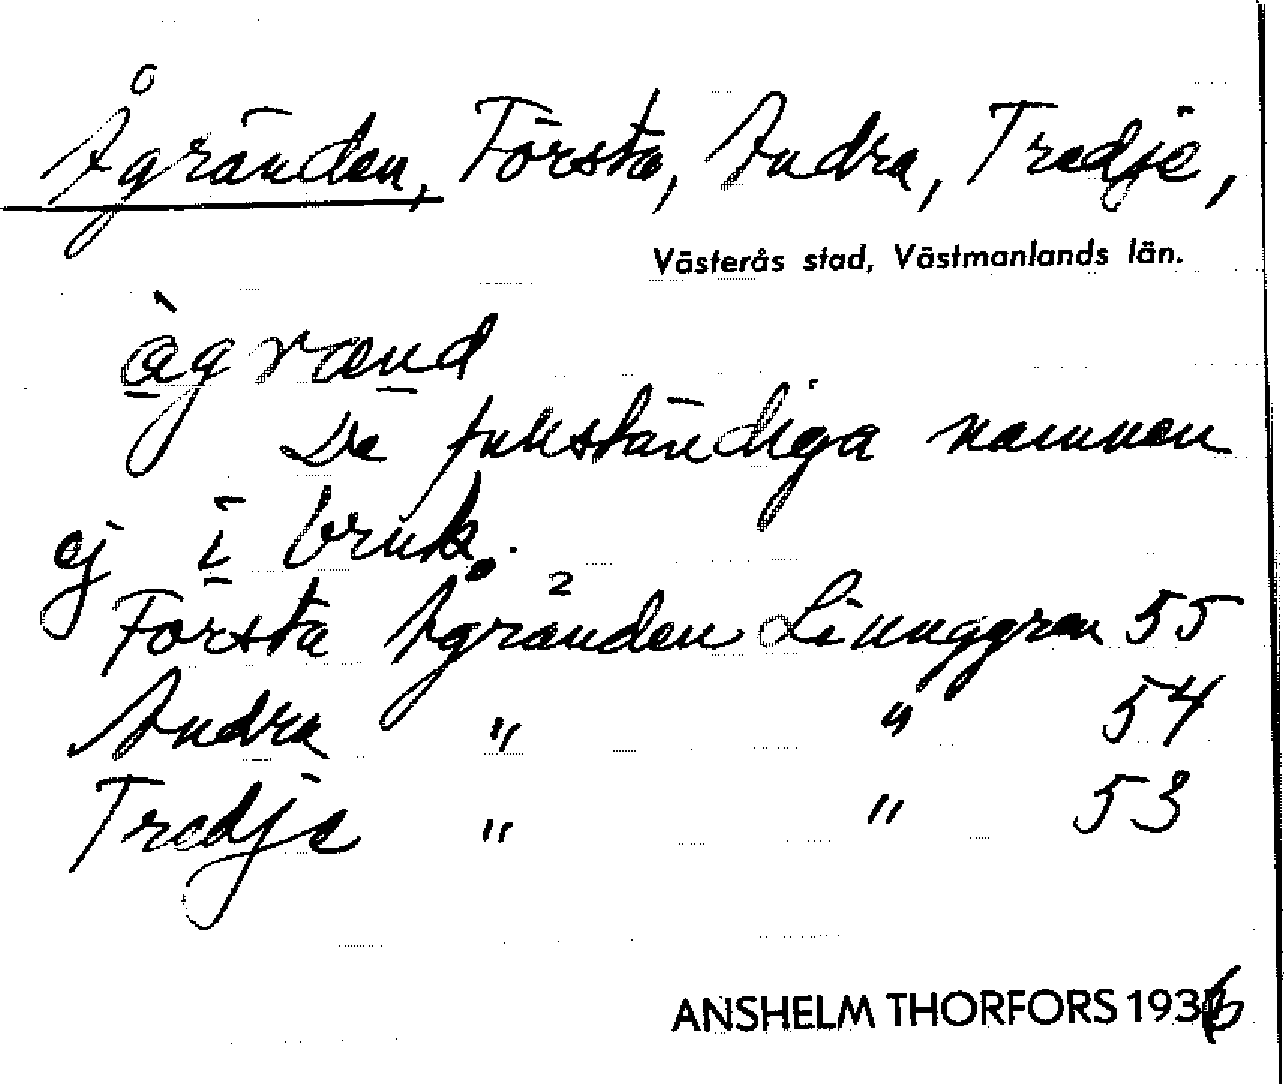 Ågränden, Första, Andra, Tredje,
Västerås stad, Västmanlands län.
ågrænd
De fullständiga namnen
ej i bruk.
Första Ågränden Linnggren 55
Andra " " 54
Tredje " " 53
ANSHELM THORFORS 1936